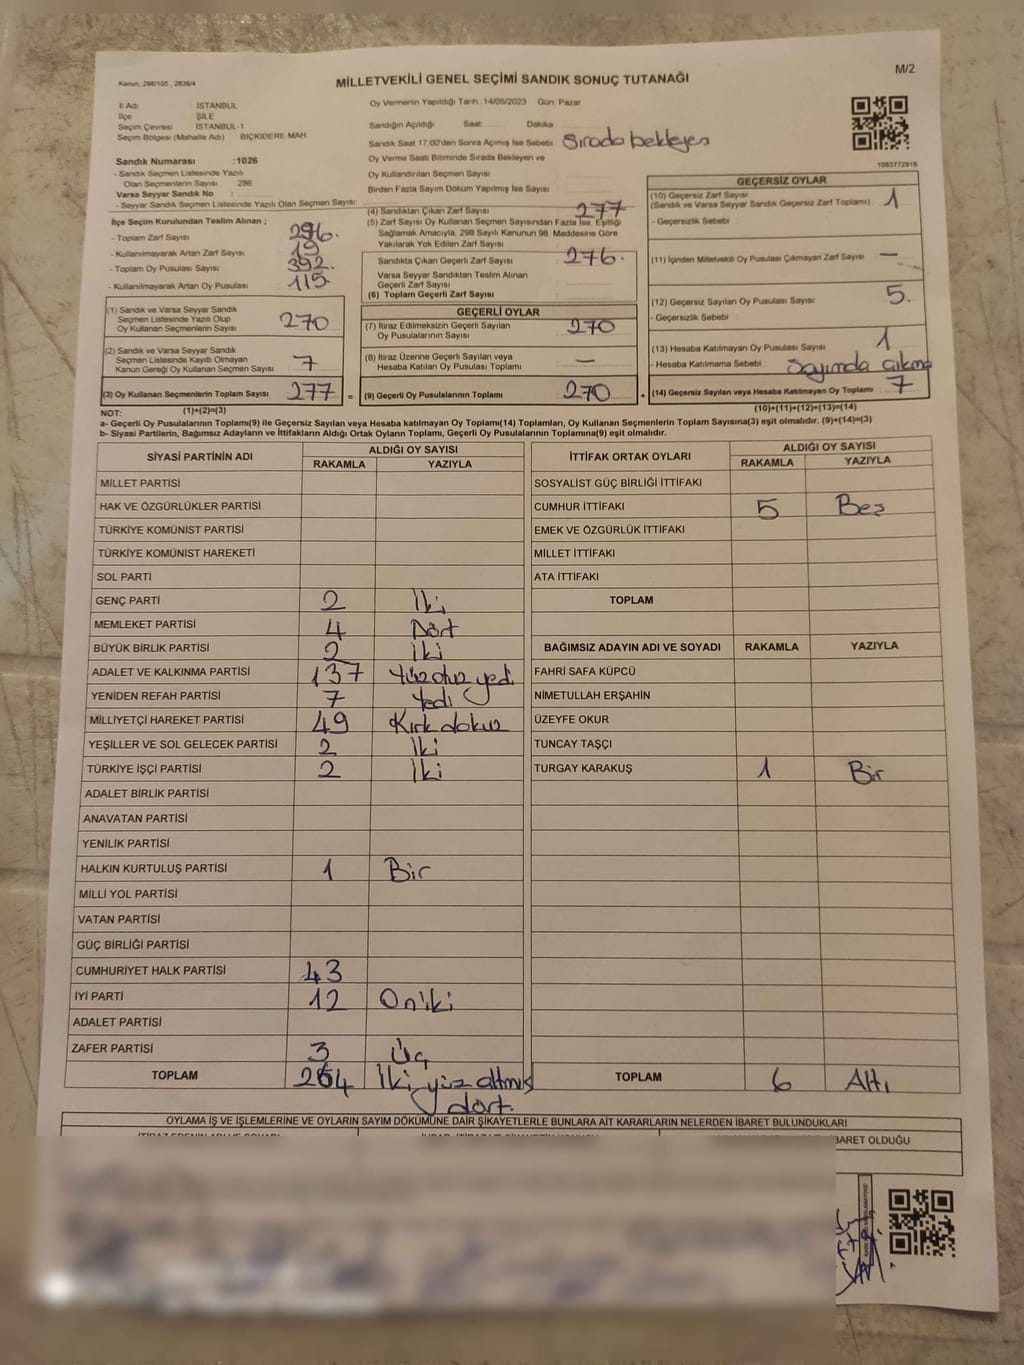 M/2
Kanun: 298/105 , 2839/4
MİLLETVEKİLİ GENEL SEÇİMİ SANDIK SONUÇ TUTANAĞI
İl Adı İSTANBUL
İlçe ŞİLE
Seçim Çevresi İSTANBUL-1
Seçim Bölgesi (Mahalle Adı) BIÇKIDERE MAH.
Sandık Numarası :1026
- Sandık Seçmen Listesinde Yazılı
Olan Seçmenlerin Sayısı 286
Varsa Seyyar Sandık No :
- Seyyar Sandık Seçmen Listesinde Yazılı Olan Seçmen Sayısı:
Oy Vermenin Yapıldığı Tarih :14/05/2023 Gün: Pazar
Sandığın Açıldığı Saat Dakika
Sandık Saat 17:00'den Sonra Açılmış İse Sebebi : Sırada bekleyen
Oy Verme Saati Bitiminde Sırada Bekleyen ve
Oy Kullandırılan Seçmen Sayısı
Birden Fazla Sayım Döküm Yapılmış İse Sayısı
1083772916
İlçe Seçim Kurulundan Teslim Alınan ;
- Toplam Zarf Sayısı 296.
- Kullanılmayarak Artan Zarf Sayısı 19
- Toplam Oy Pusulası Sayısı 392.
- Kullanılmayarak Artan Oy Pusulası 115.
(1) Sandık ve Varsa Seyyar Sandık
Seçmen Listesinde Yazılı Olup
Oy Kullanan Seçmenlerin Sayısı 270
(2) Sandık ve Varsa Seyyar Sandık
Seçmen Listesinde Kayıtlı Olmayan
Kanun Gereği Oy Kullanan Seçmen Sayısı 7
(3) Oy Kullanan Seçmenlerin Toplam Sayısı 277 =
(4) Sandıktan Çıkan Zarf Sayısı 277
(5) Zarf Sayısı Oy Kullanan Seçmen Sayısından Fazla İse, Eşitliği
Sağlamak Amacıyla, 298 Sayılı Kanunun 98. Maddesine Göre
Yakılarak Yok Edilen Zarf Sayısı
Sandıkta Çıkan Geçerli Zarf Sayısı 276.
Varsa Seyyar Sandıktan Teslim Alınan
Geçerli Zarf Sayısı
(6) Toplam Geçerli Zarf Sayısı
GEÇERLİ OYLAR
(7) İtiraz Edilmeksizin Geçerli Sayılan
Oy Pusulalarının Sayısı 270
(8) İtiraz Üzerine Geçerli Sayılan veya
Hesaba Katılan Oy Pusulası Toplamı —
(9) Geçerli Oy Pusulalarının Toplamı 270 +
GEÇERSİZ OYLAR
(10) Geçersiz Zarf Sayısı
(Sandık ve Varsa Seyyar Sandık Geçersiz Zarf Toplamı) 1
- Geçersizlik Sebebi
(11) İçinden Milletvekili Oy Pusulası Çıkmayan Zarf Sayısı —
(12) Geçersiz Sayılan Oy Pusulası Sayısı 5.
- Geçersizlik Sebebi
(13) Hesaba Katılmayan Oy Pusulası Sayısı 1
- Hesaba Katılmama Sebebi Sayımda çıkma
(14) Geçersiz Sayılan veya Hesaba Katılmayan Oy Toplamı 7
NOT: (1)+(2)=(3) (10)+(11)+(12)+(13)=(14)
a- Geçerli Oy Pusulalarının Toplamı(9) ile Geçersiz Sayılan veya Hesaba katılmayan Oy Toplamı(14) Toplamları, Oy Kullanan Seçmenlerin Toplam Sayısına(3) eşit olmalıdır. (9)+(14)=(3)
b- Siyasi Partilerin, Bağımsız Adayların ve İttifakların Aldığı Ortak Oyların Toplamı, Geçerli Oy Pusulalarının Toplamına(9) eşit olmalıdır.
SİYASİ PARTİNİN ADI ALDIĞI OY SAYISI
RAKAMLA YAZIYLA
MİLLET PARTİSİ
HAK VE ÖZGÜRLÜKLER PARTİSİ
TÜRKİYE KOMÜNİST PARTİSİ
TÜRKİYE KOMÜNİST HAREKETİ
SOL PARTİ
GENÇ PARTİ 2 İki
MEMLEKET PARTİSİ 4 Dört
BÜYÜK BİRLİK PARTİSİ 2 İki
ADALET VE KALKINMA PARTİSİ 137 Yüz otuz yedi
YENİDEN REFAH PARTİSİ 7 Yedi
MİLLİYETÇİ HAREKET PARTİSİ 49 Kırk dokuz
YEŞİLLER VE SOL GELECEK PARTİSİ 2 İki
TÜRKİYE İŞÇİ PARTİSİ 2 İki
ADALET BİRLİK PARTİSİ
ANAVATAN PARTİSİ
YENİLİK PARTİSİ
HALKIN KURTULUŞ PARTİSİ 1 Bir
MİLLİ YOL PARTİSİ
VATAN PARTİSİ
GÜÇ BİRLİĞİ PARTİSİ
CUMHURİYET HALK PARTİSİ 43
İYİ PARTİ 12 Oniki
ADALET PARTİSİ
ZAFER PARTİSİ 3 Üç
TOPLAM 264 İki yüz altmış
dört.
İTTİFAK ORTAK OYLARI ALDIĞI OY SAYISI
RAKAMLA YAZIYLA
SOSYALİST GÜÇ BİRLİĞİ İTTİFAKI
CUMHUR İTTİFAKI 5 Beş
EMEK VE ÖZGÜRLÜK İTTİFAKI
MİLLET İTTİFAKI
ATA İTTİFAKI
TOPLAM
BAĞIMSIZ ADAYIN ADI VE SOYADI RAKAMLA YAZIYLA
FAHRİ SAFA KÜPCÜ
NİMETULLAH ERŞAHİN
ÜZEYFE OKUR
TUNCAY TAŞÇI
TURGAY KARAKUŞ 1 Bir
TOPLAM 6 Altı
OYLAMA İŞ VE İŞLEMLERİNE VE OYLARIN SAYIM DÖKÜMÜNE DAİR ŞİKAYETLERLE BUNLARA AİT KARARLARIN NELERDEN İBARET BULUNDUKLARI
İBARET OLDUĞU